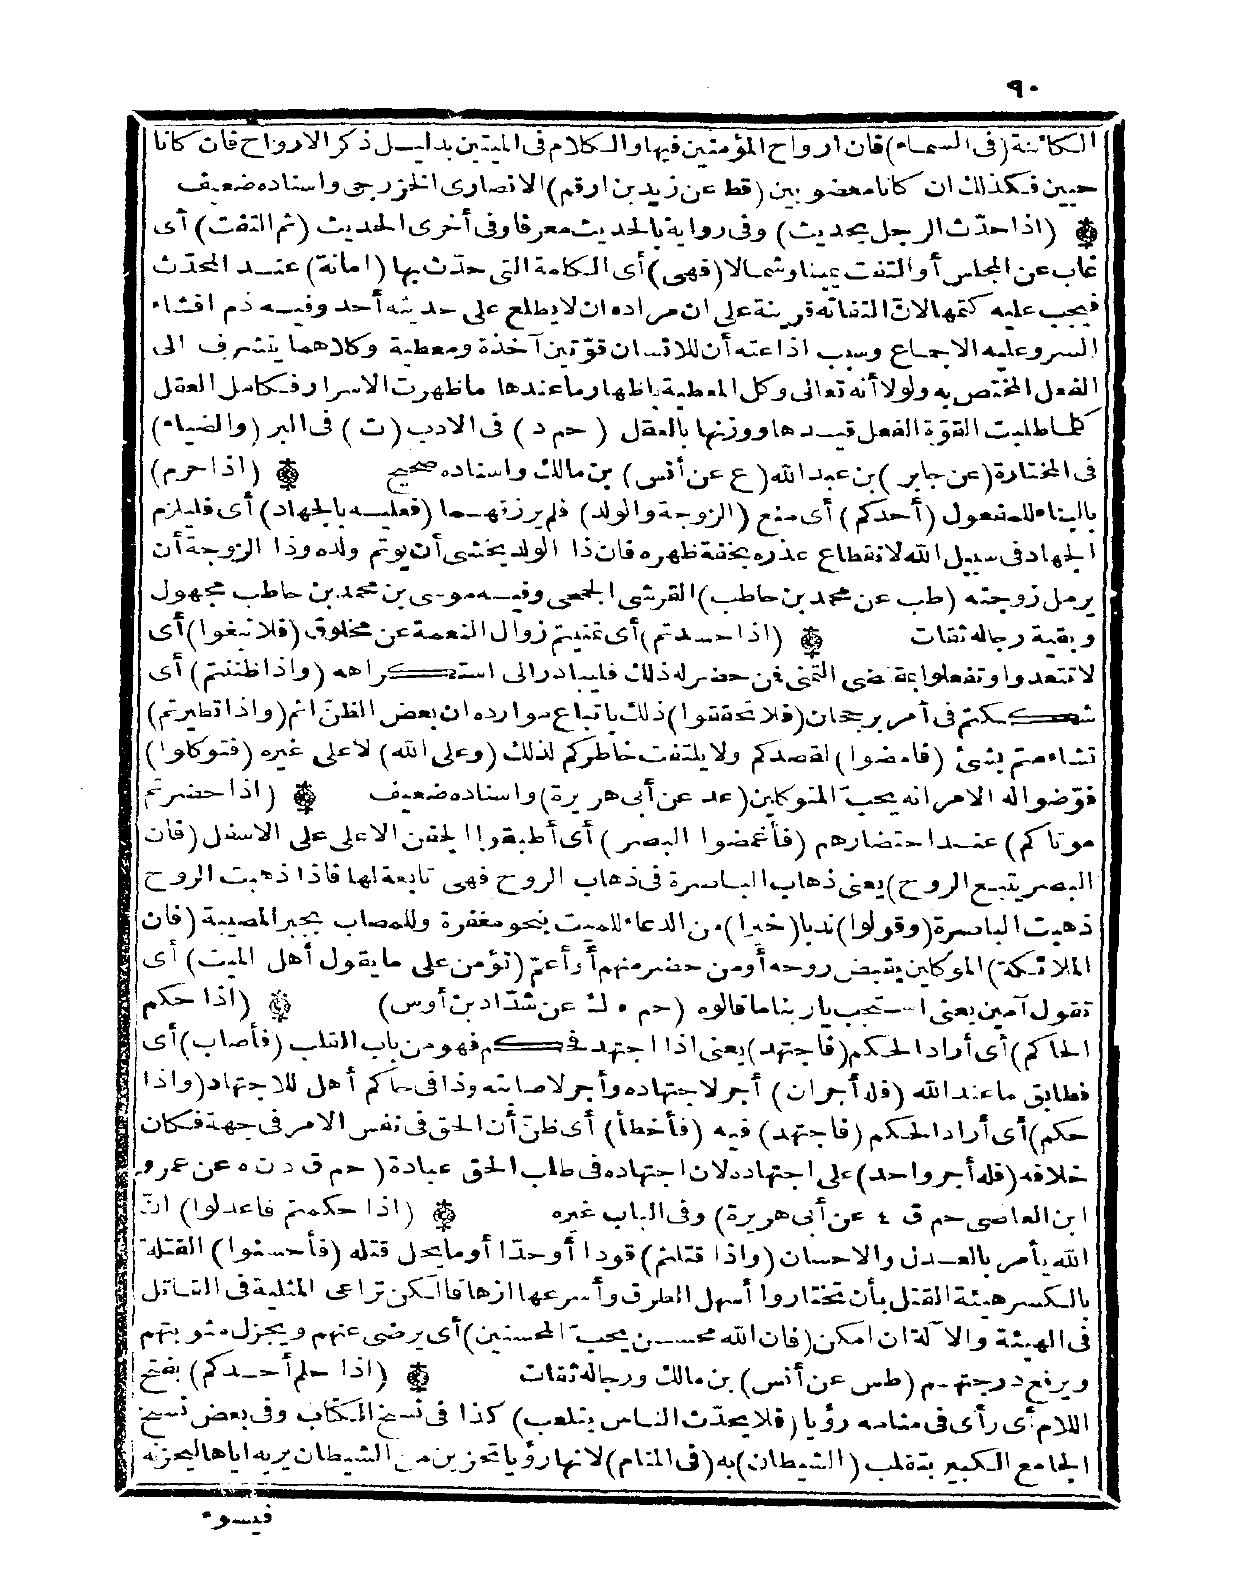 ٩٠
الكائنة (في السماء) فان ارواح المؤمنين فيها والكلام في الميتين بدليل ذكر الارواح فان كانا
حيين فكذلك ان كانا مغضوبين (قط عن زيد بن ارقم) الانصارى الخزرجى واسناده ضعيف
(اذا حدّث الرجل بحديث) وفى رواية بالحديث معرفا وفى أخرى الحديث (ثم التفت) أى
غاب عن المجلس أو التفت يمينا وشمالا (فهى) أى الكلمة التى حدّث بها (امانة) عند المحدّث
فيجب عليه كتمها لانّ التفاته قرينة على ان مراده ان لا يطلع على حديثه أحد وفيه ذم افشاء
السر وعليه الاجماع وسبب اذاعته أن للانسان قوّتين آخذة ومعطية وكلاهما يتشرف الى
الفعل المختص به ولولا أنه تعالى وكل المعطية باظهار ما عندها ما ظهرت الاسرار فكامل العقل
كلما طلبت القوّة الفعل قيدها ووزنها بالعقل (حم د) فى الادب (ت) فى البر (والضياء)
فى المختارة (عن جابر) بن عبد الله (ع عن أنس) بن مالك واسناده صحيح (اذا حرم)
بالبناء للمفعول (أحدكم) أى منع (الزوجة والولد) فلم يرزقهما (فعليه بالجهاد) أى فليلزم
الجهاد فى سبيل الله لانقطاع عذره بخفة ظهره فان ذا الولد يخشى أن يوتم ولده وذا الزوجة أن
يرمل زوجته (طب عن محمد بن حاطب) القرشى الجمعى وفيه موسى بن محمد بن حاطب مجهول
وبقية رجاله ثقات (اذا حسدتم) أى تمنيتم زوال النعمة عن مخلوق (فلا تبغوا) أى
لا تتعدوا وتفعلوا بمقتضى التمنى فمن حضر له ذلك فليبادر الى استكراهه (واذا ظننتم) أى
شككتم فى أمر برجحان (فلا تحققوا) ذلك باتباع موارده ان بعض الظنّ اثم (واذا تطيرتم)
تشاءمتم بشئ (فامضوا) لقصدكم ولا يلتفت خاطركم لذلك (وعلى الله) لا على غيره (فتوكلوا)
فوّضوا له الامر انه يحبّ المتوكلين (عد عن أبى هريرة) واسناده ضعيف (اذا حضرتم
موتاكم) عند احتضارهم (فأغمضوا البصر) أى أطبقوا الجفن الاعلى على الاسفل (فان
البصر يتبع الروح) يعنى ذهاب الباصرة فى ذهاب الروح فهى تابعة لها فاذا ذهبت الروح
ذهبت الباصرة (وقولوا) ندبا (خيرا) من الدعاء للميت بنحو مغفرة وللمصاب بجبر المصيبة (فان
الملائكة) الموكلين بقبض روحه أو من حضر منهم أو أعمّ (تؤمن على ما يقول أهل الميت) أى
تقول آمين يعنى استجب يا ربنا ما قالوه (حم ه ك عن شدّاد بن أوس) (اذا حكم
الحاكم) أى أراد الحكم (فاجتهد) يعنى اذا اجتهد فحكم فهو من باب القلب (فأصاب) أى
فطابق ما عند الله (فله أجران) أجر لاجتهاده وأجر لاصابته وذا فى حاكم أهل للاجتهاد (واذا
حكم) أى أراد الحكم (فاجتهد) فيه (فأخطأ) أى ظنّ أن الحق فى نفس الامر فى جهة فكان
خلافه (فله أجر واحد) على اجتهاده لان اجتهاده فى طلب الحق عبادة (حم ق د ن ه عن عمرو
ابن العاصى حم ق ٤ عن أبى هريرة) وفى الباب غيره (اذا حكمتم فاعدلوا) انّ
الله يأمر بالعدل والاحسان (واذا قتلتم) قودا أو حدّا أو ما يحل قتله (فأحسنوا) القتلة
بالكسر هيئة القتل بأن تختاروا أسهل الطرق وأسرعها ازهاقا لكن تراعى المثلية فى القاتل
فى الهيئة والآلة ان امكن (فان الله محسن يحبّ المحسنين) أى يرضى عنهم ويجزل مثوبتهم
ويرفع درجتهم (طس عن أنس) بن مالك ورجاله ثقات (اذا حلم أحدكم) بفتح
اللام أى رأى فى منامه رؤيا (فلا يحدّث الناس بتلعب) كذا فى نسخ الكتاب وفى بعض نسخ
الجامع الكبير بتقلب (الشيطان) به (فى المنام) لانها رؤيا تحزين من الشيطان يريه اياها ليحزنه
فيسوء